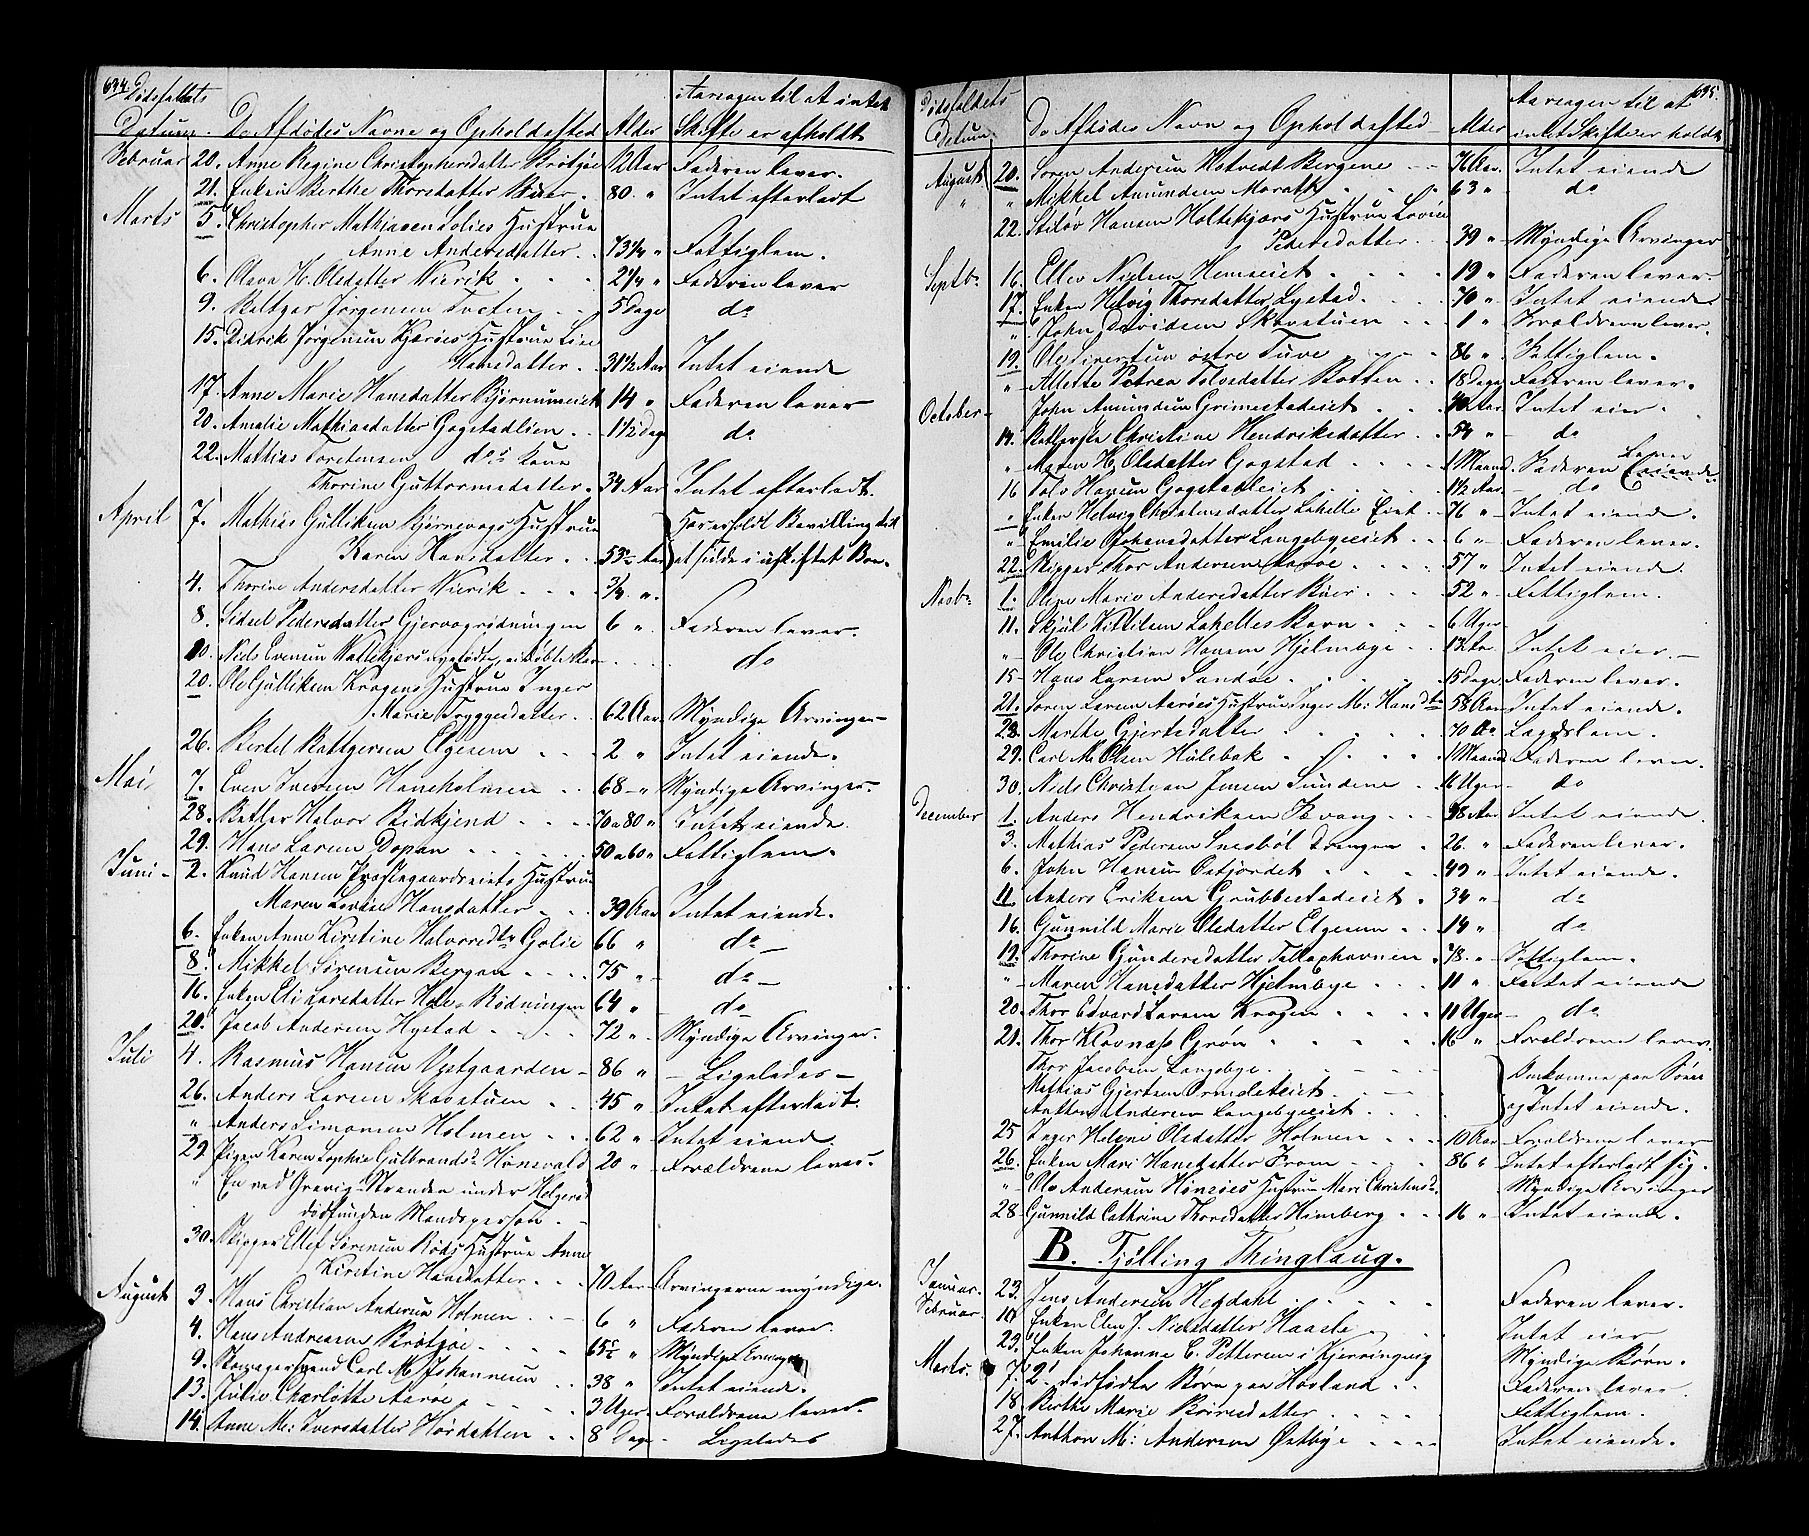 634.
Dødsfaldets Datum. De Afdødes Navne og Opholdssted Alder Aarsagen til at intet Skifte er afholdt
Februar 20. Anne Regine Christophersdatter Brøtsøe 12 Aar Faderen lever.
21. Enken Berthe Thorsdatter Buer 80. " Intet efterladt
Marts 5. Christopher Mathiasen Hustrue
Anne Andersdatter 73 1/4 " Fattiglem.
6. Olava H. Olsdatter Wierik 2 1/4 " Faderen lever
9. Bottger Jørgensen Tveten 5 Dage do
15. Didrik Jørgensen Kjærøes Hustrue Lise
Hansdatter 31 1/2 Aar Intet eiende
17. Anne Marie Hansdatter Bjørnumeiet 14 " Faderen lever
20. Amalie Mathiasdatter Gogstadlien 11 1/2 Dag do
22. Mathias Torstensen do s Kone
Thorine Guttormsdatter 34 Aar Intet efterladt.
April 7. Mathias Gulliksen Bjørnevogs Hustrue
Karen Hansdatter 53 Aar Har erholdt Bevilling til at sidde i uskiftet Boe.
4. Thorine Andersdatter Wierik 3/4 ".
8. Sidsel Pedersdatter Gjervogrødningen 6 " Faderen lever.
10. Niels Evensen Vattekjers nyefødte, ei døbte Barn do
20. Ole Gulliksen Krogens Hustrue Inger
Marie Tryggesdatter 62 Aar Myndige Arvinger
26. Bertel Bottgersen Elgesem 2 " Intet eiende.
Mai 7. Even Iversen Haneholmen 68 " Myndige Arvinger.
28. Betler Halvor Bidkjend 70 a 80 " Intet eiende.
29. Hans Larsen Dopan 50 a 60 " Fattiglem.
Juni 2. Knud Hansen Præstegaardseiets Hustrue
Maren Lovise Hansdatter 39 Aar Intet eiende.
6. Enken Anne Kirstine Halvorsdtr Golie 66 " do
8. Mikkel Sørensen Bergan 75 " do
16. Enken Eli Larsdatter Hole Rødningen 64 " do
20. Jacob Andersen Hystad 72 " Myndige Arvinger.
Juli 4. Rasmus Hansen Vestgaarden 86 " Ligeledes
26. Anders Larsen Skovstuen 45 " Intet efterladt.
" Anders Simonsen Holmen 62 " Intet eiend.
29 Pigen Karen Sophie Gulbrandsd. Hønsvald 20 " Forældrene lever.
" En ved Grevig Stranden under Helgerød
dødfunden Mandsperson.
30. Skipper Ellef Sørensen Røds Hustrue Anne
Kirstine Hansdatter 70 Aar Arvingerne myndige.
August 3. Hans Christian Andersen Holmen 6 " Faderen lever.
4. Hans Andreasen Brøtsøe 65 " Myndige Arvinger
9. Skomagersvend Carl M. Johannesen 38 " Intet eiende.
13. Julie Charlotte Aarøe 3 Uger. Forældrene lever.
14. Anne M: Iversdatter Hørdatten 8 Dage Ligeledes
635.
Dødsfaldets Datum De Afdødes Navn og Opholdssted Alder Aarsagen til at intet Skifte er holdt
August 20. Søren Andersen Hotvedt Bergene 76 Aar. Intet eiende
" " Mikkel Amundsen Moratk 63 " do
22. Stiløv Hansen Holtekjærs Hustrue Lovise
Pedersdatter 39 " Myndige Arvinger
Septbr 16. Ellev Nielsen Hemseiet 19 " Faderen lever.
17. Enken Helvig Thorsdatter Lystad 70 " Intet eiende
" John Davidsen Skovstuen 1 " Forældrene lever.
19. Ole Sivertsen østre Tuve 86 " Fattiglem.
" Allette Petrea Tolvsdatter Botten 18 Dage Faderen lever.
October John Amundsen Grimestadeiet 40 Aar Intet eier.
14. Betlerske Christine Hendriksdatter 54 " do
" Maren H. Olsdatter Gogstad 1 Maaned. Faderen lever
16 Tolv Hansen Gogstadeiet 1 1/2 Aar do
" Enken Helvig Christensdatter Lahelle Eiet 76 " Intet eiende.
" Emilie Johansdatter Langebyeeiet 6 " Faderen lever.
22. Skipper Thor Andersen Aarøe 57 " Intet eiende.
Novbr 1. Olene Marie Andersdatter Buer 52 " Fattiglem.
11. Skjul Kittilsen Lahelles Barn 6 Uger
" Ole Christian Hansen Hjelmbye 13 Aar. Intet eier.
15 Hans Larsen Sandøe 15 Dage Faderen lever.
21. Søren Larsen Aarøes Hustrue Inger M: Hansdtr 58 Aar Intet eiende.
28. Marthe Gjertsdatter 70 Aar Lagdslem.
29. Carl M. Olsen Hulebak 1 Maaned Faderen lever.
30. Niels Christian Jensen Sundene 16 Uger do
December 1. Anders Hendriksen Kvang 98 Aar Intet eiende.
3. Mathias Pedersen Snesbøl Drengen 26. " Faderen lever.
6. John Hansen Østjordet 49 " Intet eiende.
11. Anders Eriksen Grubbestadeiet 34 " do
16. Gunnild Marie Olsdatter Elgesem 14 " do
19. Thorine Gundersdatter Tallaphavnen 48. " Fattiglem.
" Maren Hansdatter Hjelmbye 11 " Intet eiende
20. Thor Edvard Larsen Krogen 11 Uger do
21. Thor Klovnæss Grøn 16 " Forældrene lever.
Thor Jacobsen Langebye.
Mathias Gjertsen Ormdalseiet Omkomne paa Søen
Anthon Andersen Langebyeeiet og Intet eiende.
25 Inger Helene Olsdatter Holmen 10 Aar Forældrene lever
26. Enken Mari Hansdatter From 86 " Intet efterladt sig.
" Ole Andersen Hønsøes Hustrue Mari Christensd. Myndige Arvinger
28. Gunnild Cathrine Thorsdatter Himberg 16 " Intet eiende.
B. Tjølling Thinglaug.
Januar 23. Jens Andersen Hegdahl Faderen lever.
Februar 10 Enken Elen J. Nielsdatter Haasle Intet eier
23. Enken Johanne C. Pettersen i Kjerringvig Myndige Børn.
Marts. 7. 2 dødfødte Børn paa Hovland Faderen lever.
18 Berthe Marie Børresdatter Fattiglem.
27. Anthon M: Andersen Østbye Intet eiende.